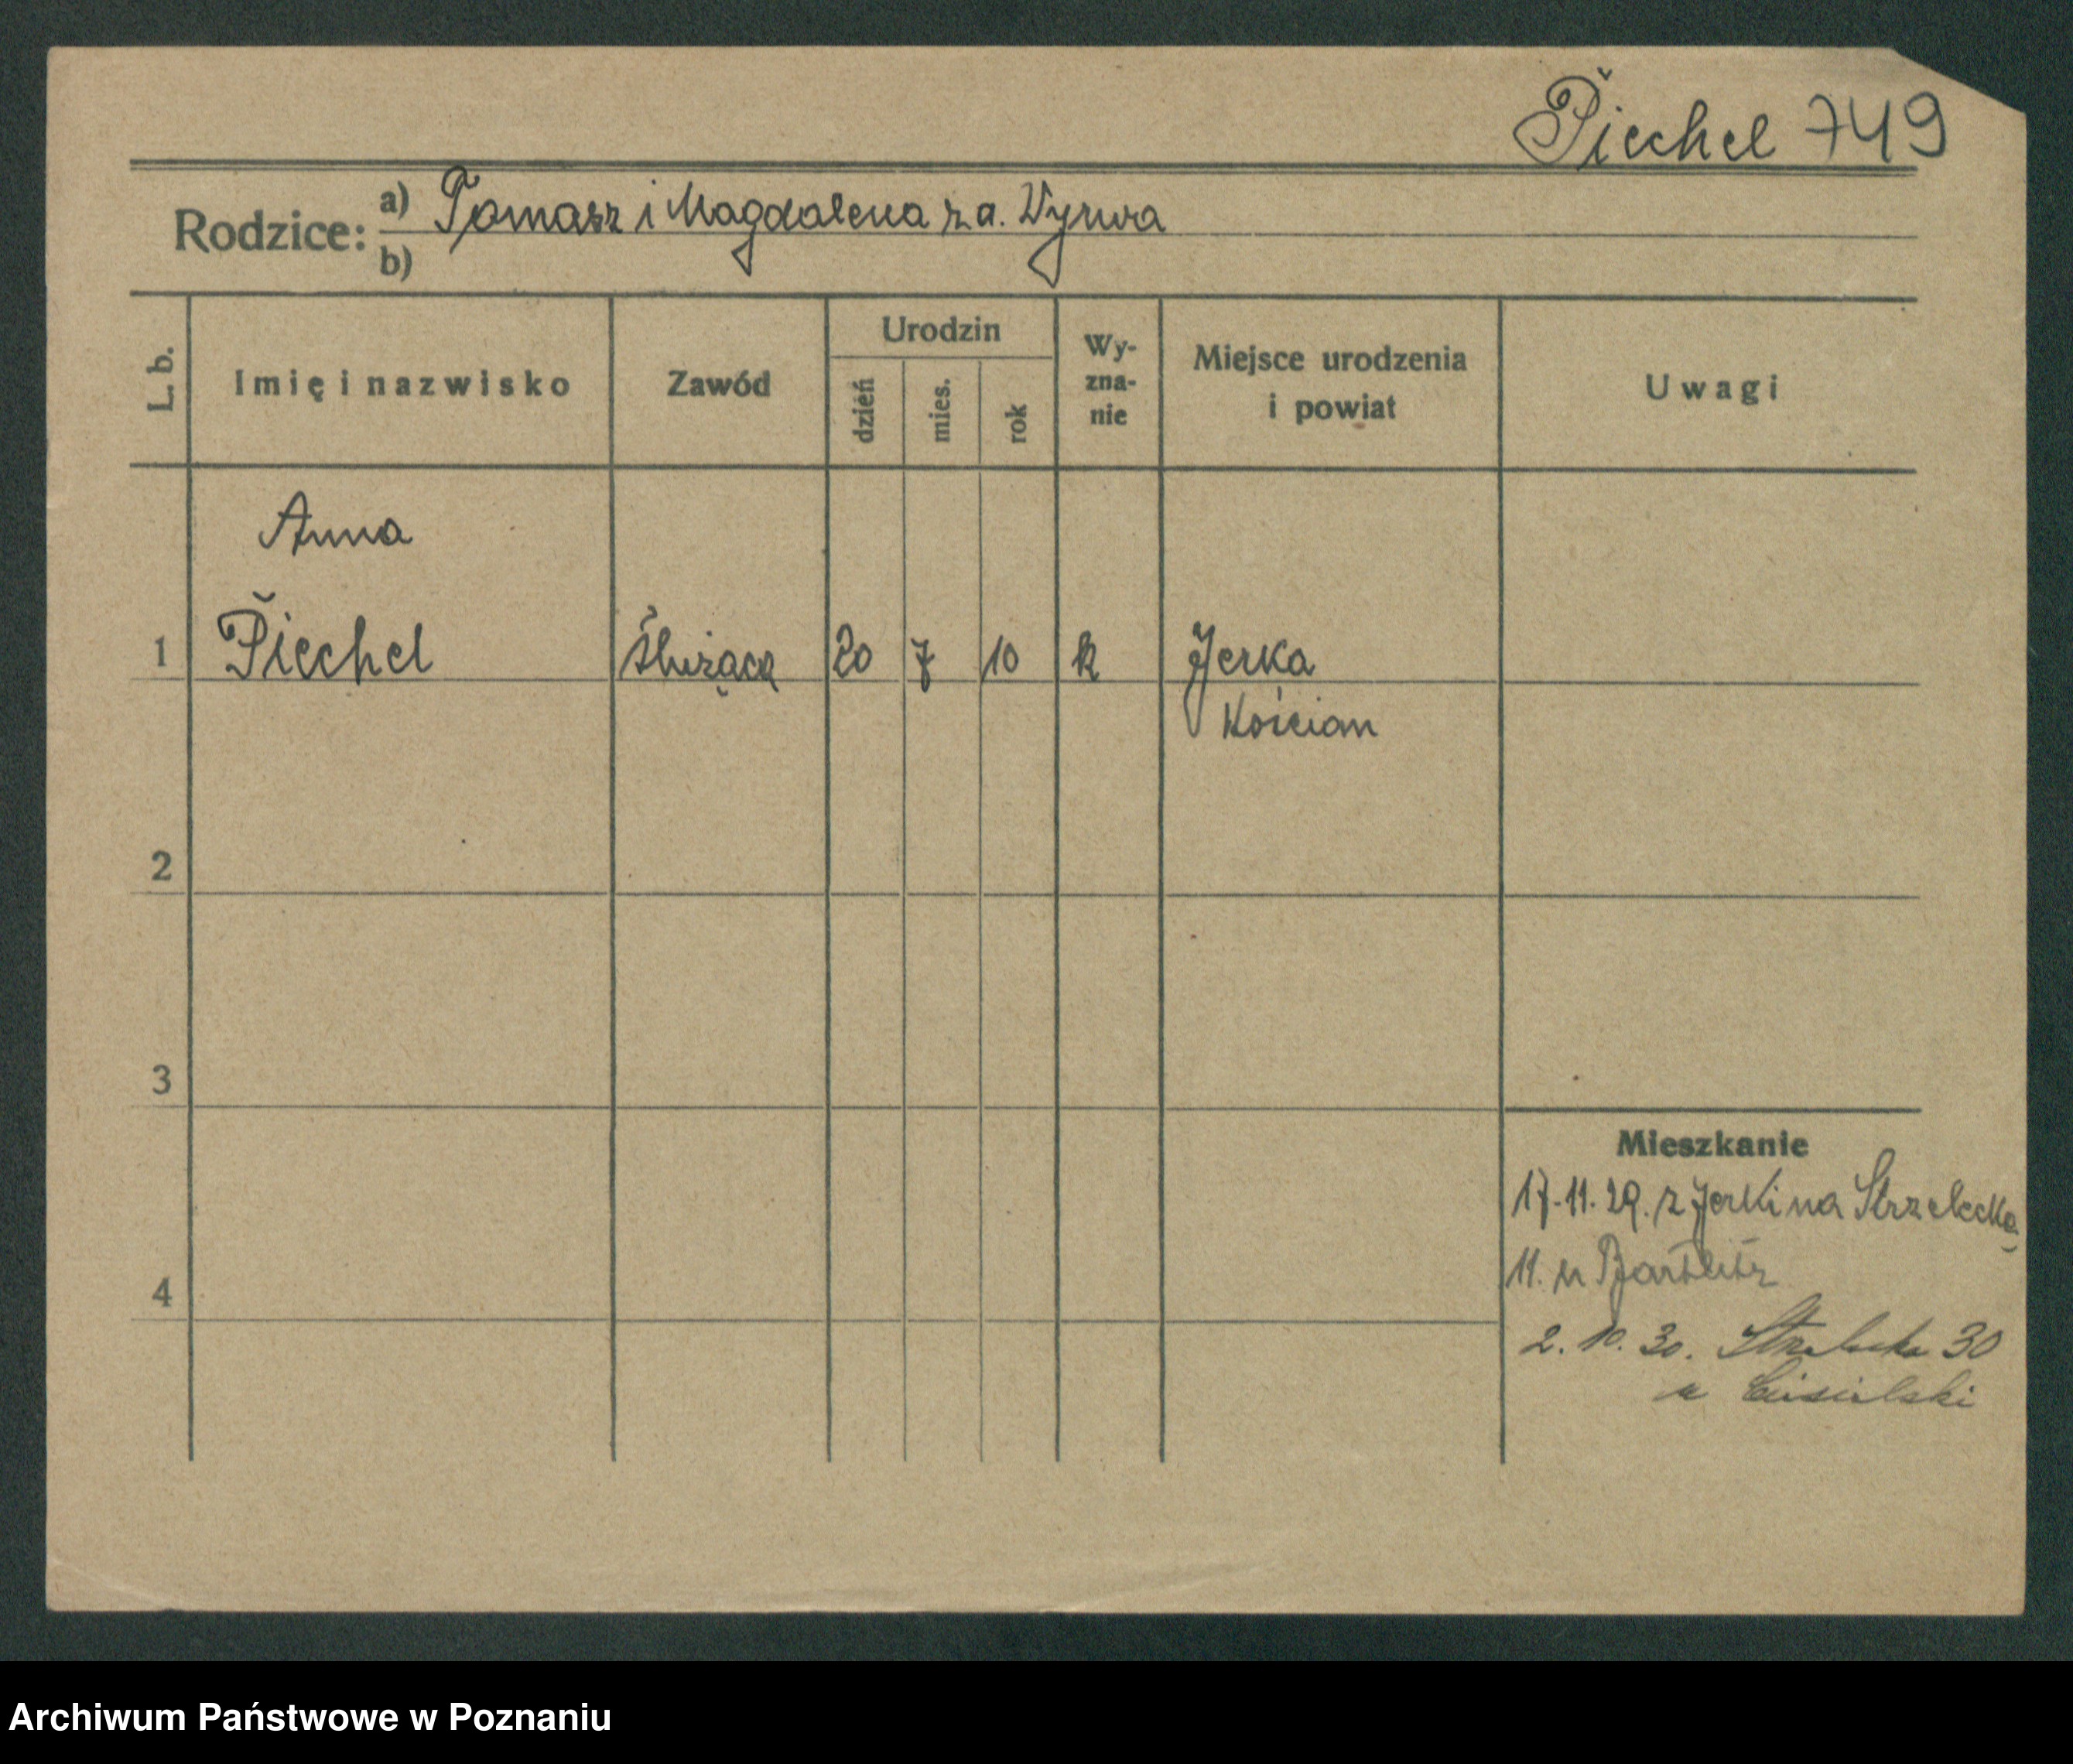 Piechel 749
Rodzice: a) Tomasz i Magdalena z d. Wyrwa
b)
L. b. Imię i nazwisko Zawód Urodzin dzień mies. rok Wy-zna-nie Miejsce urodzenia i powiat Uwagi
Anna
1 Piechel służąca 20 7 10 k Jerka
Kościan
2
3
4
Mieszkanie
17-11.29. z Jerki na Strzelecką
11. u Bartlitz
2.10.30. Strzelecka 30
u Ciesielski
Archiwum Państwowe w Poznaniu